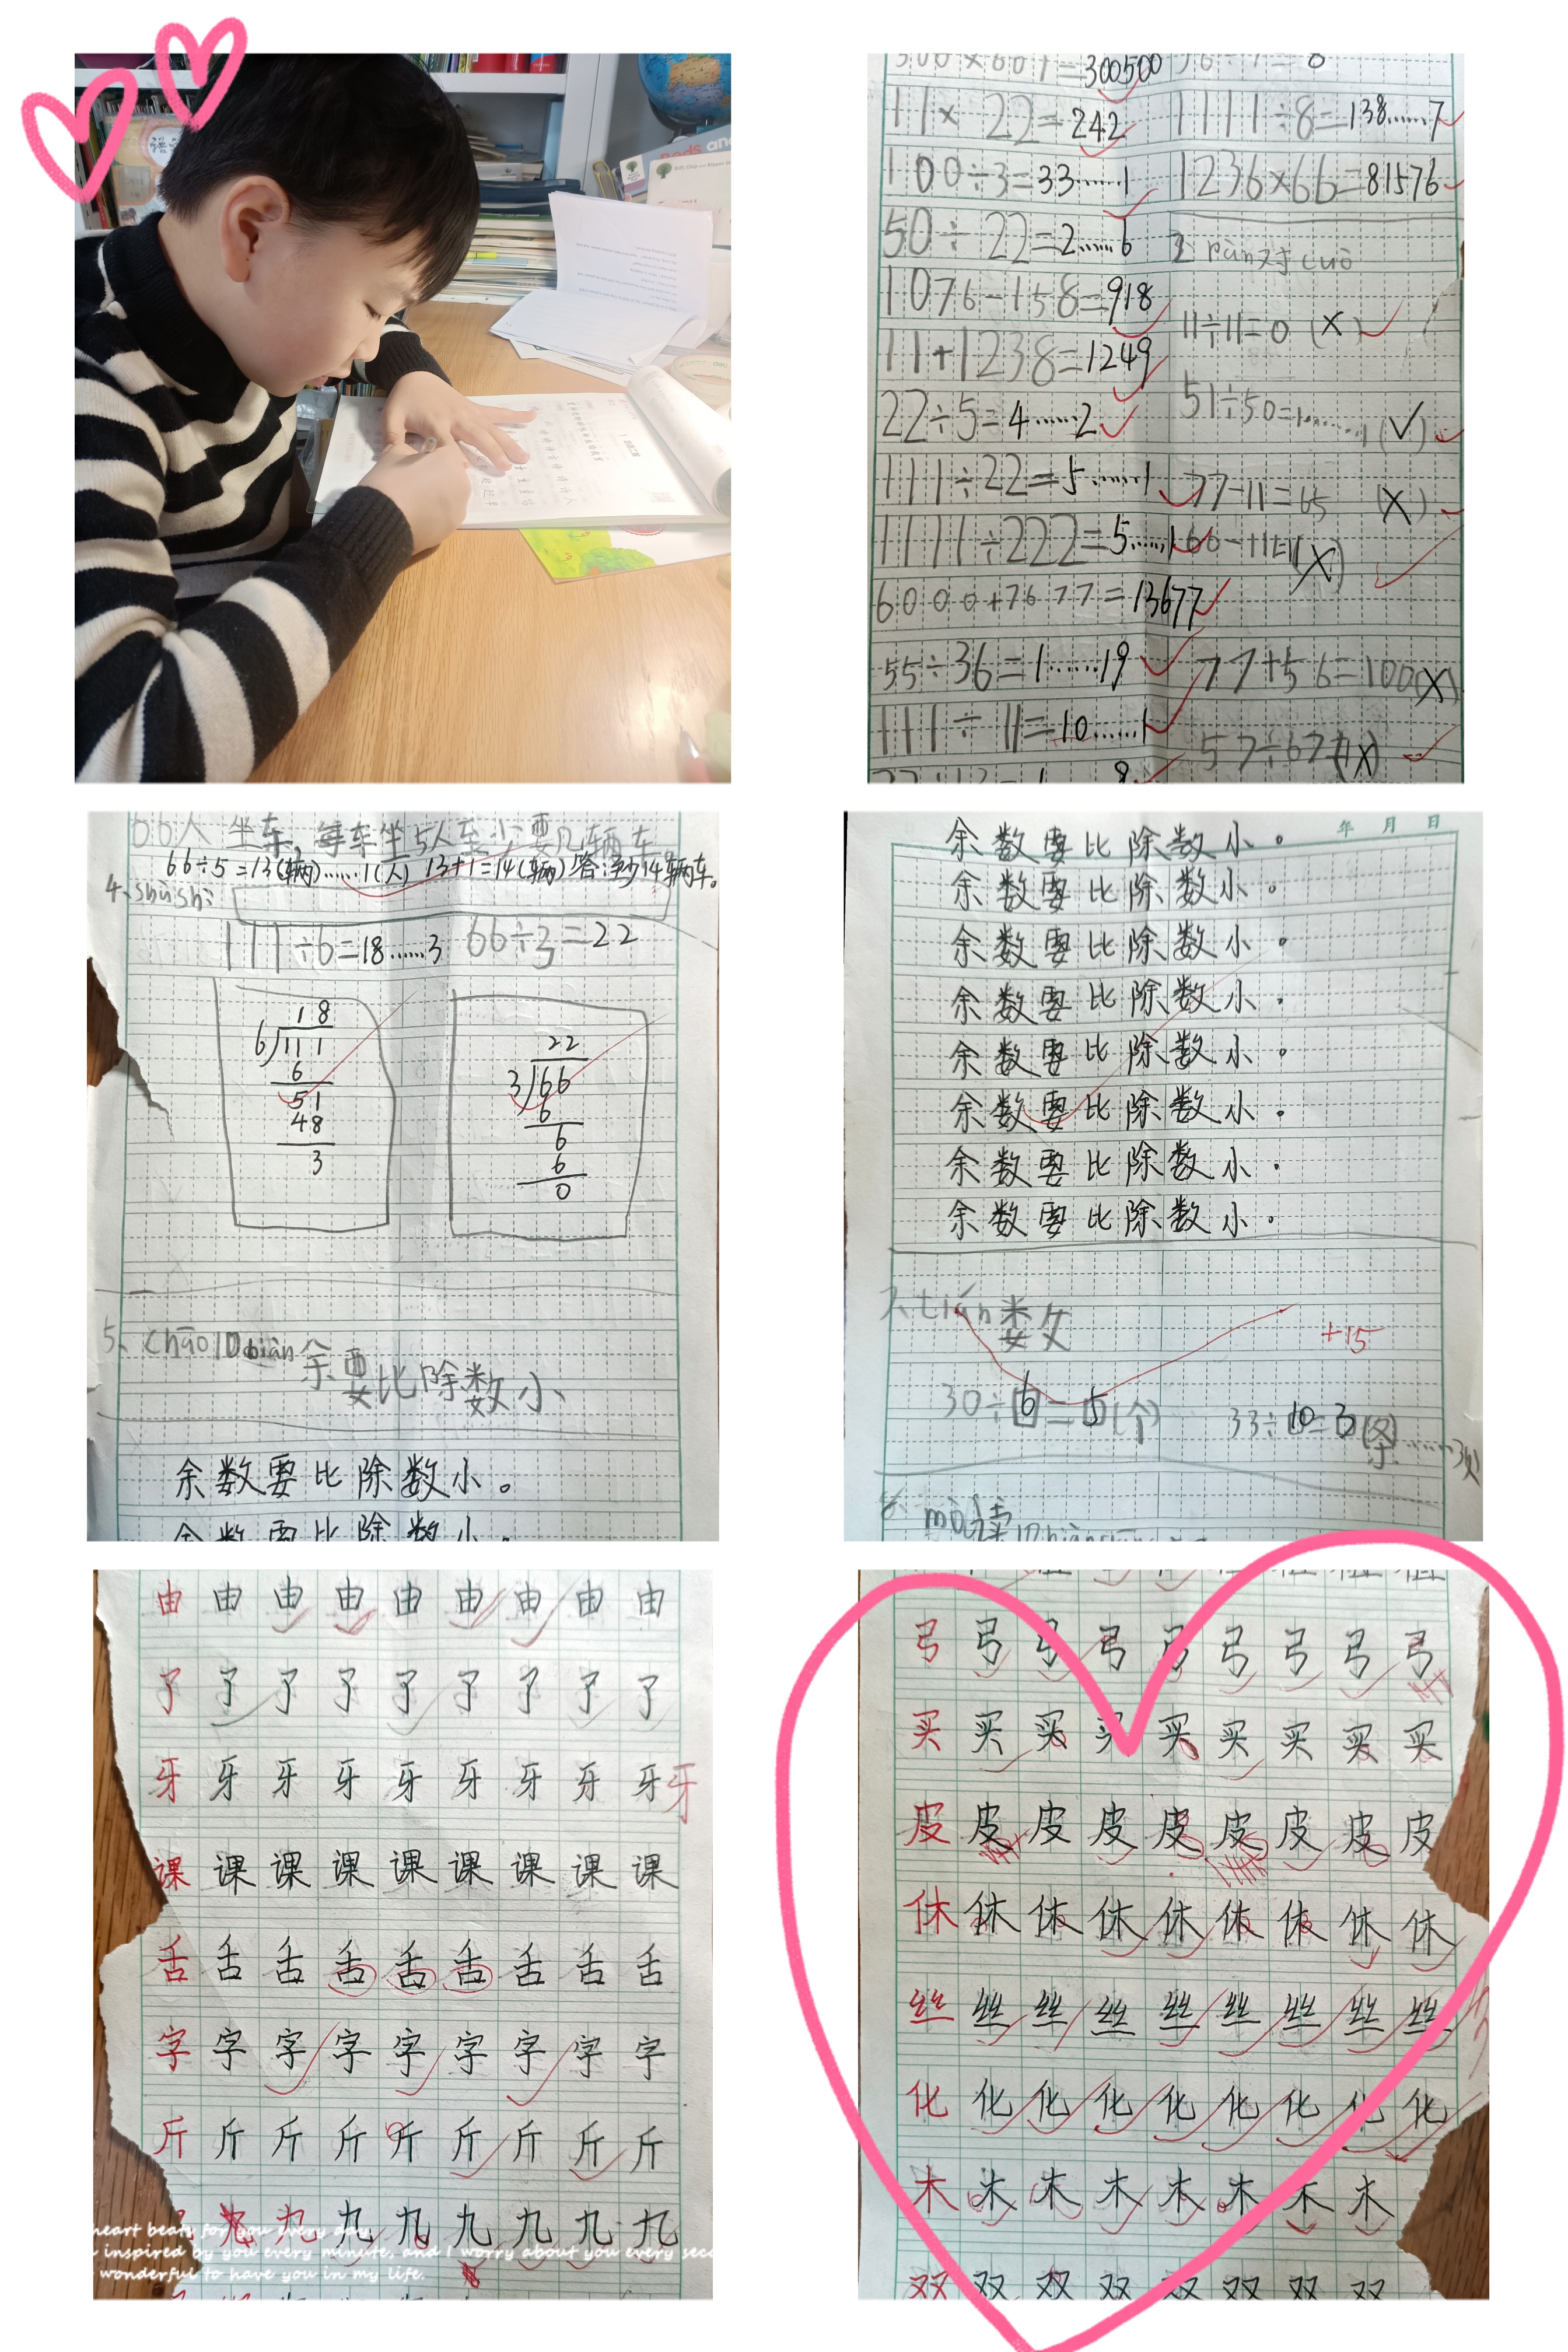 300500
11×22=242
100÷3=33……1
50÷22=2……6
1076-158=918
11+1238=1249
22÷5=4……2
111÷22=5……1
1111÷222=5……1
6000+7677=13677
55÷36=1……19
111÷11=10……1
1111÷8=138……7
1236×66=81576
pàn对cuò
11÷11=0(×)
51÷50=1……1(✓)
77-11=65(×)
(×)
77+56=100(×)
57÷67=1(×)
66人坐车,每车坐5人至少要几辆车。
66÷5=13(辆)……1(人) 13+1=14(辆) 答:至少14辆车。
4、shùshì
111÷6=18……3 66÷3=22
18
6 111
6
51
48
3
22
3 66
6
6
6
0
5、chāo10biàn余要比除数小、
余数要比除数小。
余数要比除数小。
年 月 日
余数要比除数小。
余数要比除数小。
余数要比除数小。
余数要比除数小。
余数要比除数小。
余数要比除数小。
余数要比除数小。
余数要比除数小。
tián数
+15
30÷6=5(个) 33÷10=3(条)……3
读
由由由由由由由由由
了了了了了了了了了
牙牙牙牙牙牙牙牙牙牙
课课课课课课课课课
舌舌舌舌舌舌舌舌舌
字字字字字字字字字
斤斤斤斤斤斤斤斤斤
九九九九九九九九
heart beats for you every day,
inspired by you every minute, and I worry about you every
wonderful to have you in my life.
弓弓弓弓弓弓弓弓弓
买买买买买买买买买
皮皮皮皮皮皮皮皮皮
休休休休休休休休休
丝丝丝丝丝丝丝丝丝
化化化化化化化化化
木木木木木木木木
双双双双双双双双